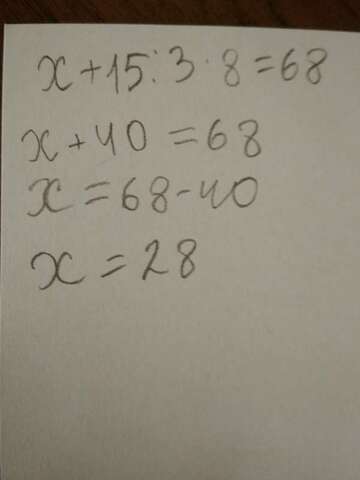 x+15:3·8=68
x+40=68
x=68-40
x=28